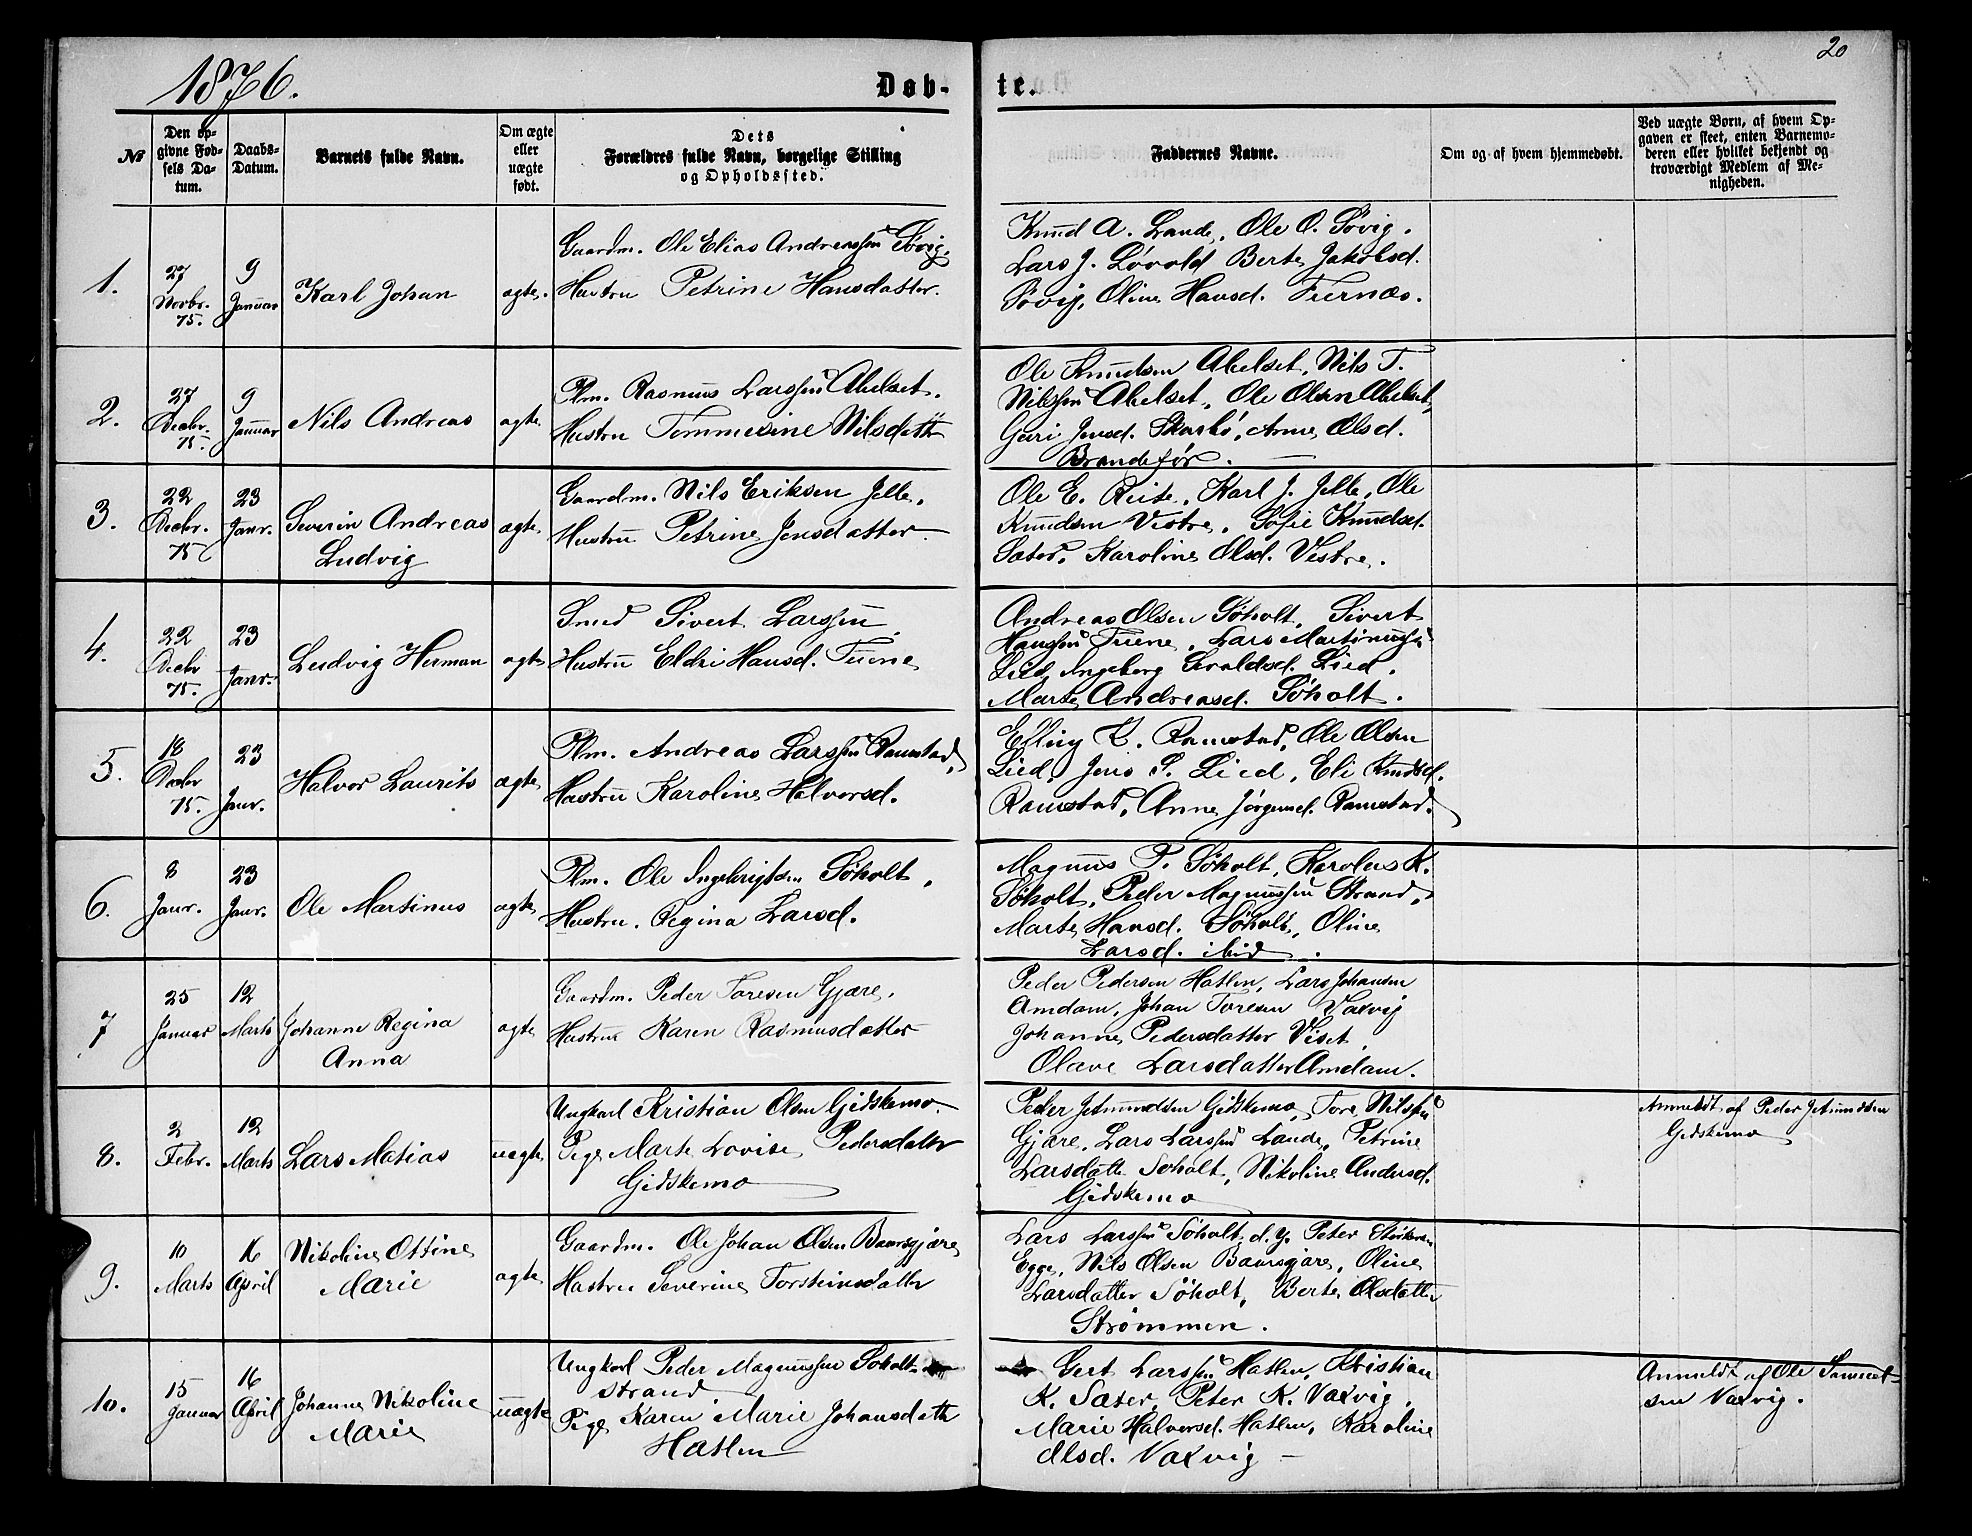 1876.
Døb-
te.
20
No
Den op-
givne Fød-
sels Da-
tum.
Daabs-
Datum.
Barnets fulde Navn.
Om ægte
eller
uægte
født.
Dets
Forældres fulde Navn, borgelige Stilling
og Opholdssted.
Faddernes Navne.
Om og af hvem hjemmedøbt.
Ved uægte Børn, af hvem Op-
gaven er skeet, enten Barnemo-
deren eller hvilket bekjendt og
troværdigt Medlem af Me-
nigheden.
1.
27
Novbr.
75.
9
Januar
Karl Johan
ægte.
Gaardm. Ole Elias Andreassen Søvig.
Hustru Petrine Hansdatter.
Knud A. Lande, Ole O. Søvig.
Lars J. Løvold Berte Jakobsd.
Søvig, Oline Hansd.
2.
27
Decbr.
75.
9
Januar
Nils Andreas
ægte
Plm. Rasmus Larssen Abelset.
Hustru Nilsdattr
Ole Knudsen Abelset, Nils T.
Nilssen Abelset, Ole Olsen Abelset,
Guri Jensd. Skarbø, Anne Olsd.
3.
22
Decbr.
75
23
Janr.
Severin Andreas
Ludvig
ægte
Gaardm. Nils Eriksen Jelle,
Hustru Petrine Jensdatter
Ole E. Reite, Karl J. Jelle, Ole
Knudsen Vestre, Sofie Knudsd.
Sæter, Karoline Olsd. Vestre.
4.
22
Decbr
75.
23
Janr.
Ludvig Herman
ægte
Smed Sivert Larssen
Hustru Eldri Hansd. Tuene
Andreas Olsen Søholt, Sivert
Hanssen Tuene, Lars Martinussn
Lied, Ingeborg Lied.
Marte Andreasd. Søholt.
5.
18
Decbr
75.
23
Janr.
Halvor Laurits
ægte
Plm. Andreas Larssen Ramstad,
Hustru Karoline Halvorsd.
Elling K. Ramstad, Ole Olsen
Lied, Jens P. Lied, Eli Knudsd.
Ramstad, Anne Jørgensd. Ramstad.
6.
8
Janr.
23
Janr.
Ole Martinus
ægte
Plm. Ole Ingebrigtsen Søholt,
Hustru. Regina Larsd.
Magnus P. Søholt, Karolus K.
Søholt, Peder Magnussen Strand,
Marte Hansd. Søholt, Oline
Larsd. ibid.
7
25
Januar
12
Marts
Johanne Regina
Anna
ægte
Gaardm. Peder Toresen Gjære,
Hustru Karen Rasmusdatter
Peder Pedersen Hatlen, Lars Johansen
Amdam, Johan Toresen Vaxvig
Johanne Pedersdatter Viset
Olave Larsdatter Amdam.
8.
2
Febr.
12
Marts
Lars Matias
uægte
Ungkarl Kristian Olsen Gidskemo.
Pige Marte Lovise Pedersdattr
Gidskemo
Peder Jetmundsen Gidskemo, Tore Nilssen
Gjære, Lars Larssen Lande, Petrine
Larsdattr Søholt, Nikoline Andersd.
Gidskemo
Anmeldt af Peder Jetmundsen
Gidskemo
9.
10
Marts
16
April
Nikoline Ottine
Marie
ægte
Gaardm. Ole Johan Olsen Baursgjære
Hustru Severine Torsteinsdattr
Lars Larssen Søholt d.y. Peter
Egge, Nils Olsen Baursgjære, Oline
Larsdatter Søholt, Berte Olsdattr
Strømmen.
10.
15
Januar
16
April
Johanne Nikoline
Marie
uægte
Ungkarl Peder Magnussen Søholt-
strand
Pige Karen Marie Johansdattr
Hatlen
Gert Larssen Hatlen, Kristian
K. Sæter, Peter K. Vaxvig,
Marie Halvorsd. Hatlen, Karoline
Olsd. Vaxvig
Anmeldt af Ole
sen Vaxvig.